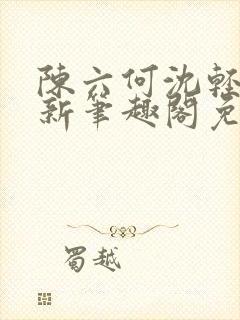 陳六何沈輕
新筆趣閣免
蜀越